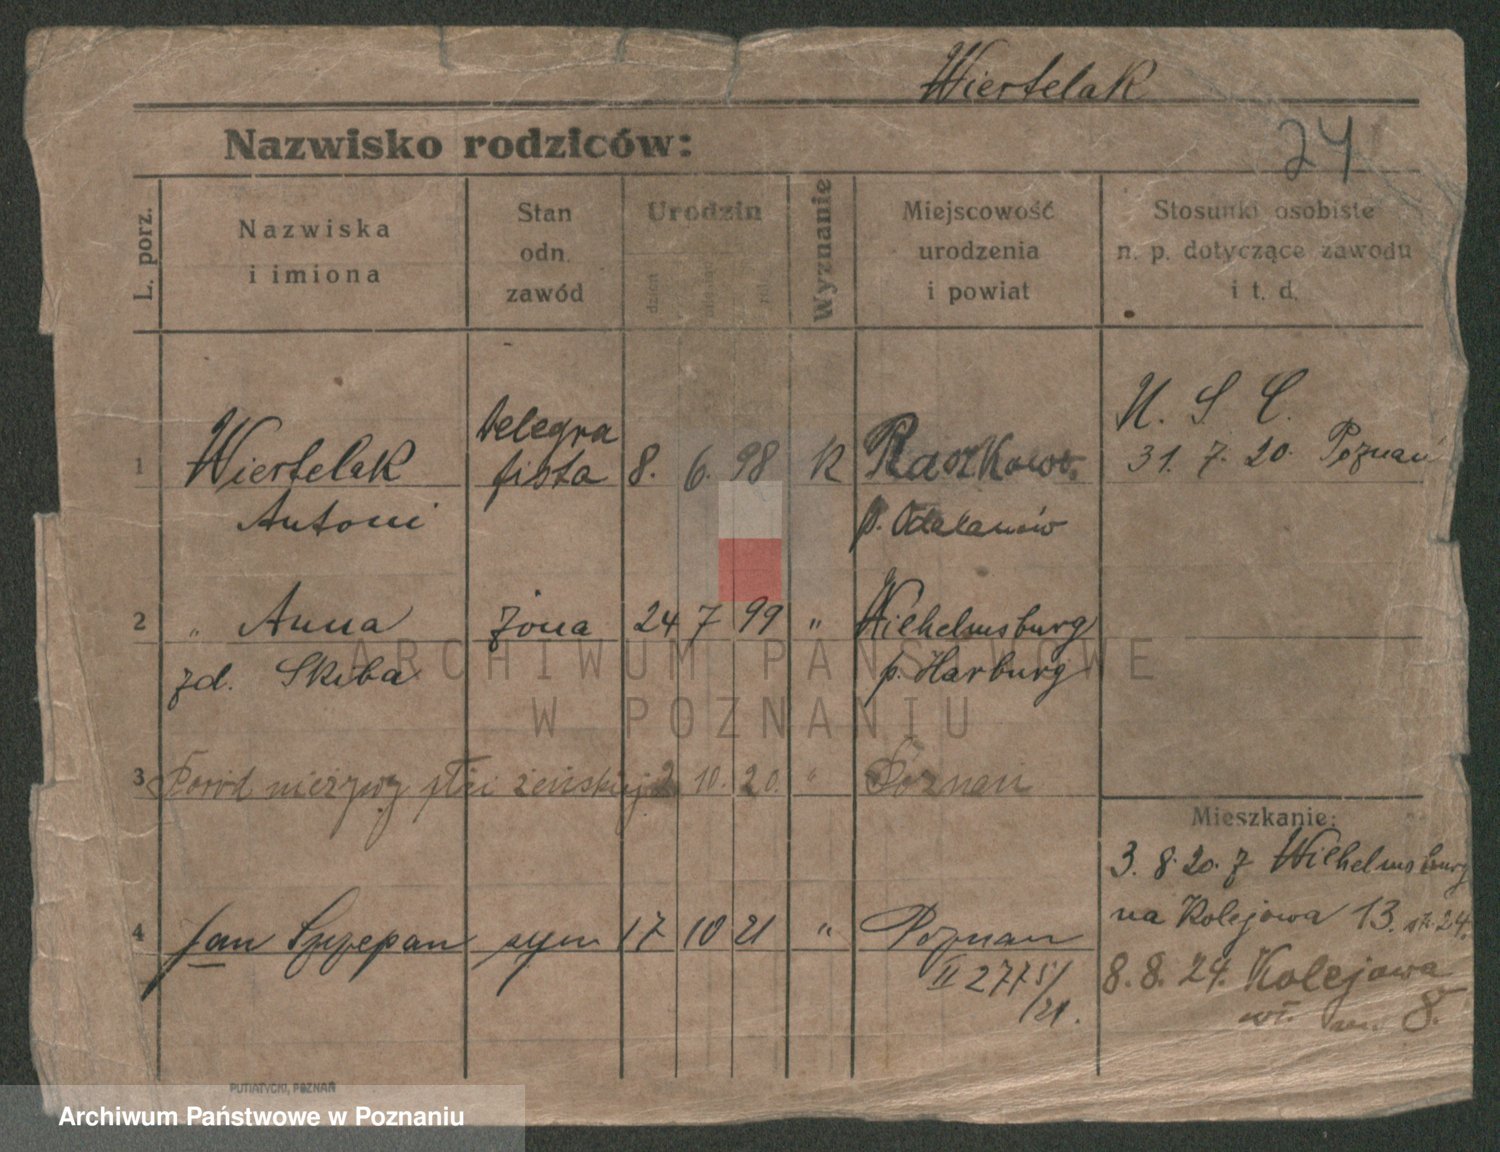 Wiertelak
Nazwisko rodziców:
24
L. porz.
Nazwiska
i imiona
Stan
odn.
zawód
Urodzin
dzień
rok
Wyznanie
Miejscowość
urodzenia
i powiat
Stosunki osobiste
n. p. dotyczące zawodu
i t. d.
1
Wiertelak
Antoni
telegra
fista
8. 6. 98
K
Raszków
p. Odolanów
U. S. C.
31. 7. 20. Poznań
2
" Anna
zd. Skiba
żona
24 7 99
"
Wilhelmsburg
p. Harburg
3
Poród nieżywy płci żeńskiej
2. 10. 20.
"
Poznań
4
Jan Szczepan
syn
17 10 21
"
Poznan
II 2775/
/21.
Mieszkanie:
3. 8. 20. z Wilhelmsburg
na Kolejowa 13. st. 24.
8. 8. 24. Kolejowa
m. 8.
PUTIATYCKI, POZNAŃ
ARCHIWUM PAŃSTWOWE
W POZNANIU
Archiwum Państwowe w Poznaniu